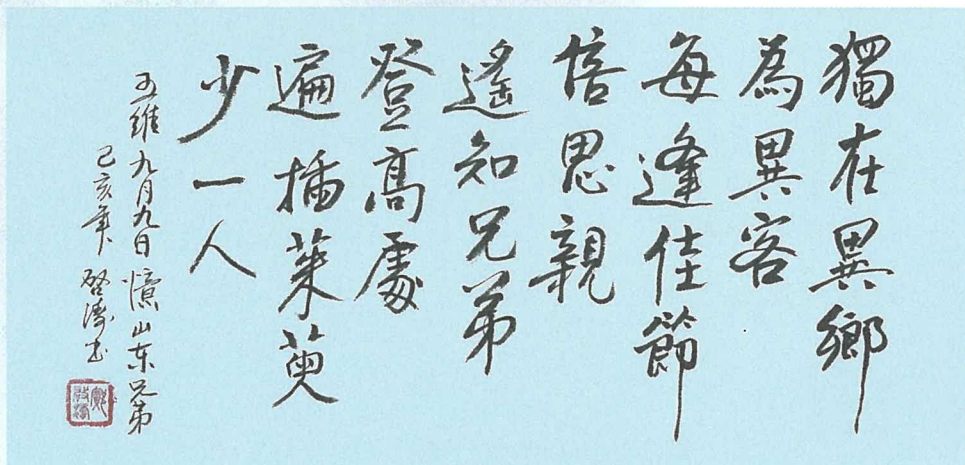 獨在異鄉
為異客
每逢佳節
倍思親
遙知兄弟
登高處
遍插茱萸
少一人
王維九月九日憶山东兄弟
己亥年 啓濤书